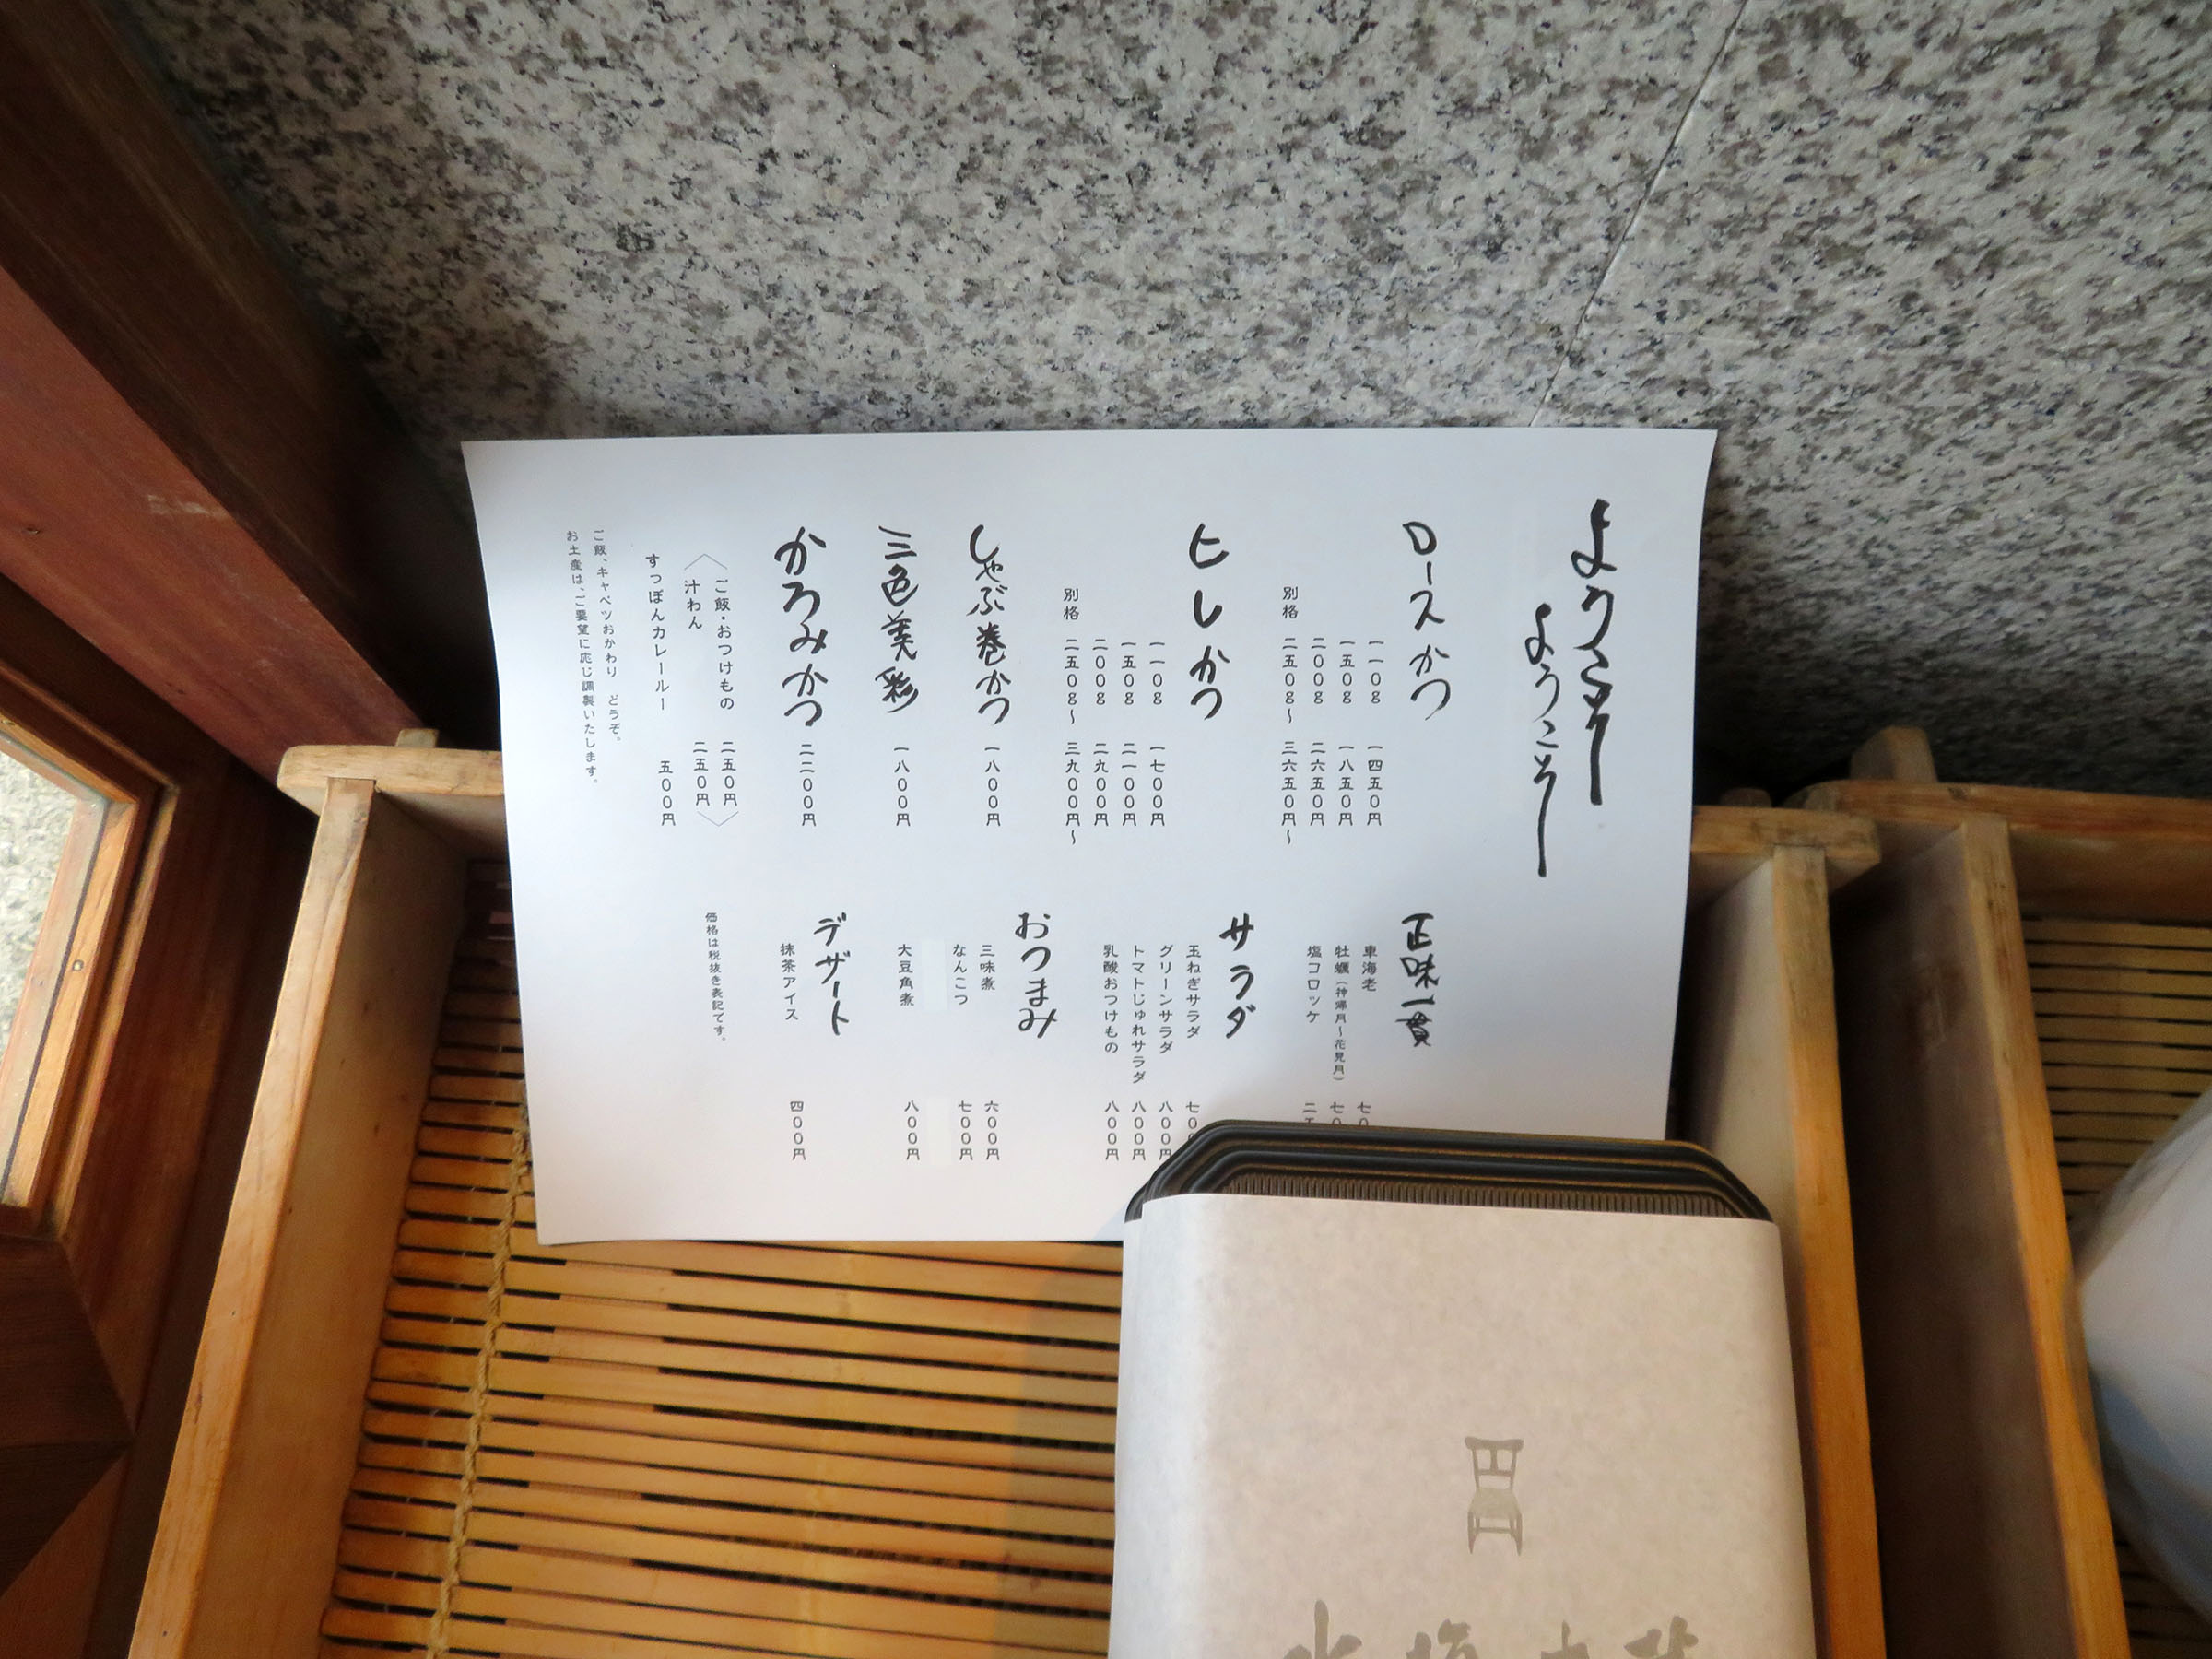 ようこそ
ようこそ
ロースかつ
一一〇g 一四五〇円
一五〇g 一八五〇円
二〇〇g 二六五〇円
別格 二五〇g〜 三六五〇円〜
ヒレかつ
一一〇g 一七〇〇円
一五〇g 二一〇〇円
二〇〇g 二九〇〇円
別格 二五〇g〜 三九〇〇円〜
しゃぶ巻かつ 一八〇〇円
三色美彩 一八〇〇円
かろみかつ 二二〇〇円
ご飯・おつけもの 二五〇円
汁わん 二五〇円
すっぽんカレールー 五〇〇円
ご飯、キャベツおかわり どうぞ。
お土産は、ご要望に応じ調製いたします。
正味一貫
車海老 七〇
牡蠣（神帰月〜花見月） 七〇
塩コロッケ 二五
サラダ
玉ねぎサラダ 七〇
グリーンサラダ 八〇〇円
トマトじゅれサラダ 八〇〇円
乳酸おつけもの 八〇〇円
おつまみ
三味煮 六〇〇円
なんこつ 七〇〇円
大豆角煮 八〇〇円
デザート
抹茶アイス 四〇〇円
価格は税抜き表記です。